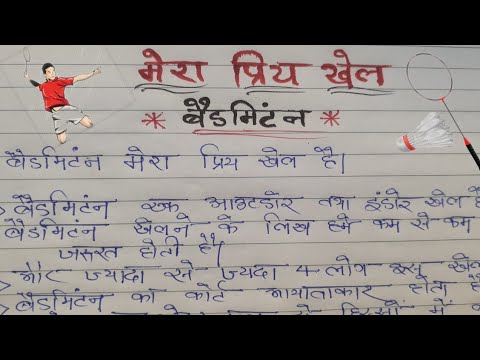 मेरा प्रिय खेल
* बैडमिंटन *
बैडमिंटन मेरा प्रिय खेल है।
बैडमिंटन एक आउटडोर तथा इंडोर खेल है
बैडमिंटन खेलने के लिए हमे कम से कम
जरुरत होती है।
और ज्यादा से ज्यदा 4 लोग इस खेल
बैडमिंटन का कोर्ट आयाताकार होता है